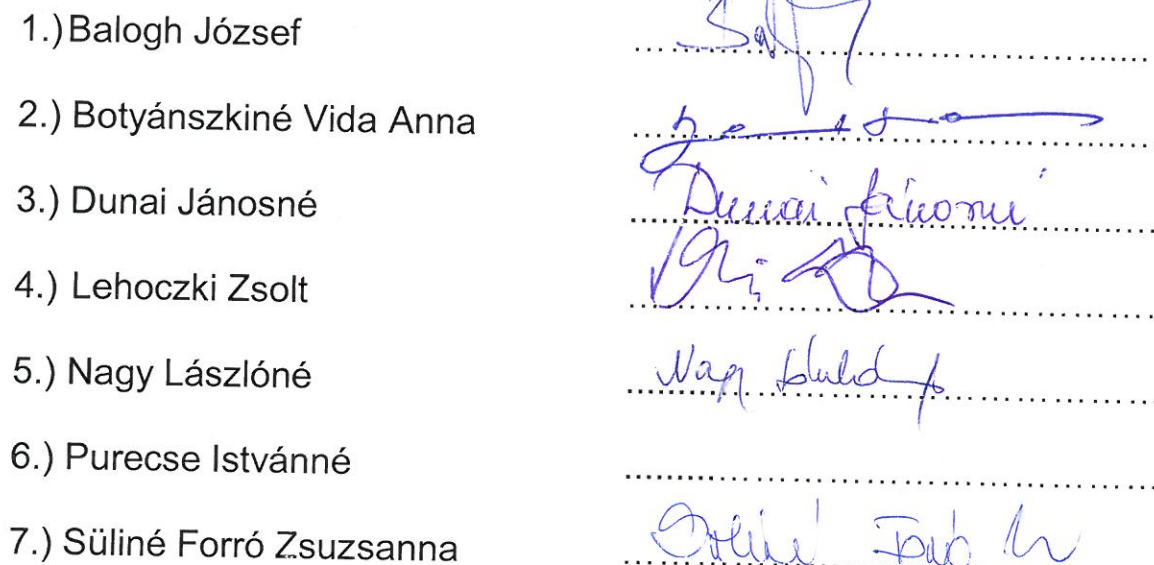 1.) Balogh József
2.) Botyánszkiné Vida Anna
3.) Dunai Jánosné Dunai Jánosné
4.) Lehoczki Zsolt
5.) Nagy Lászlóné Nagy
6.) Purecse Istvánné
7.) Süliné Forró Zsuzsanna Süliné Forró